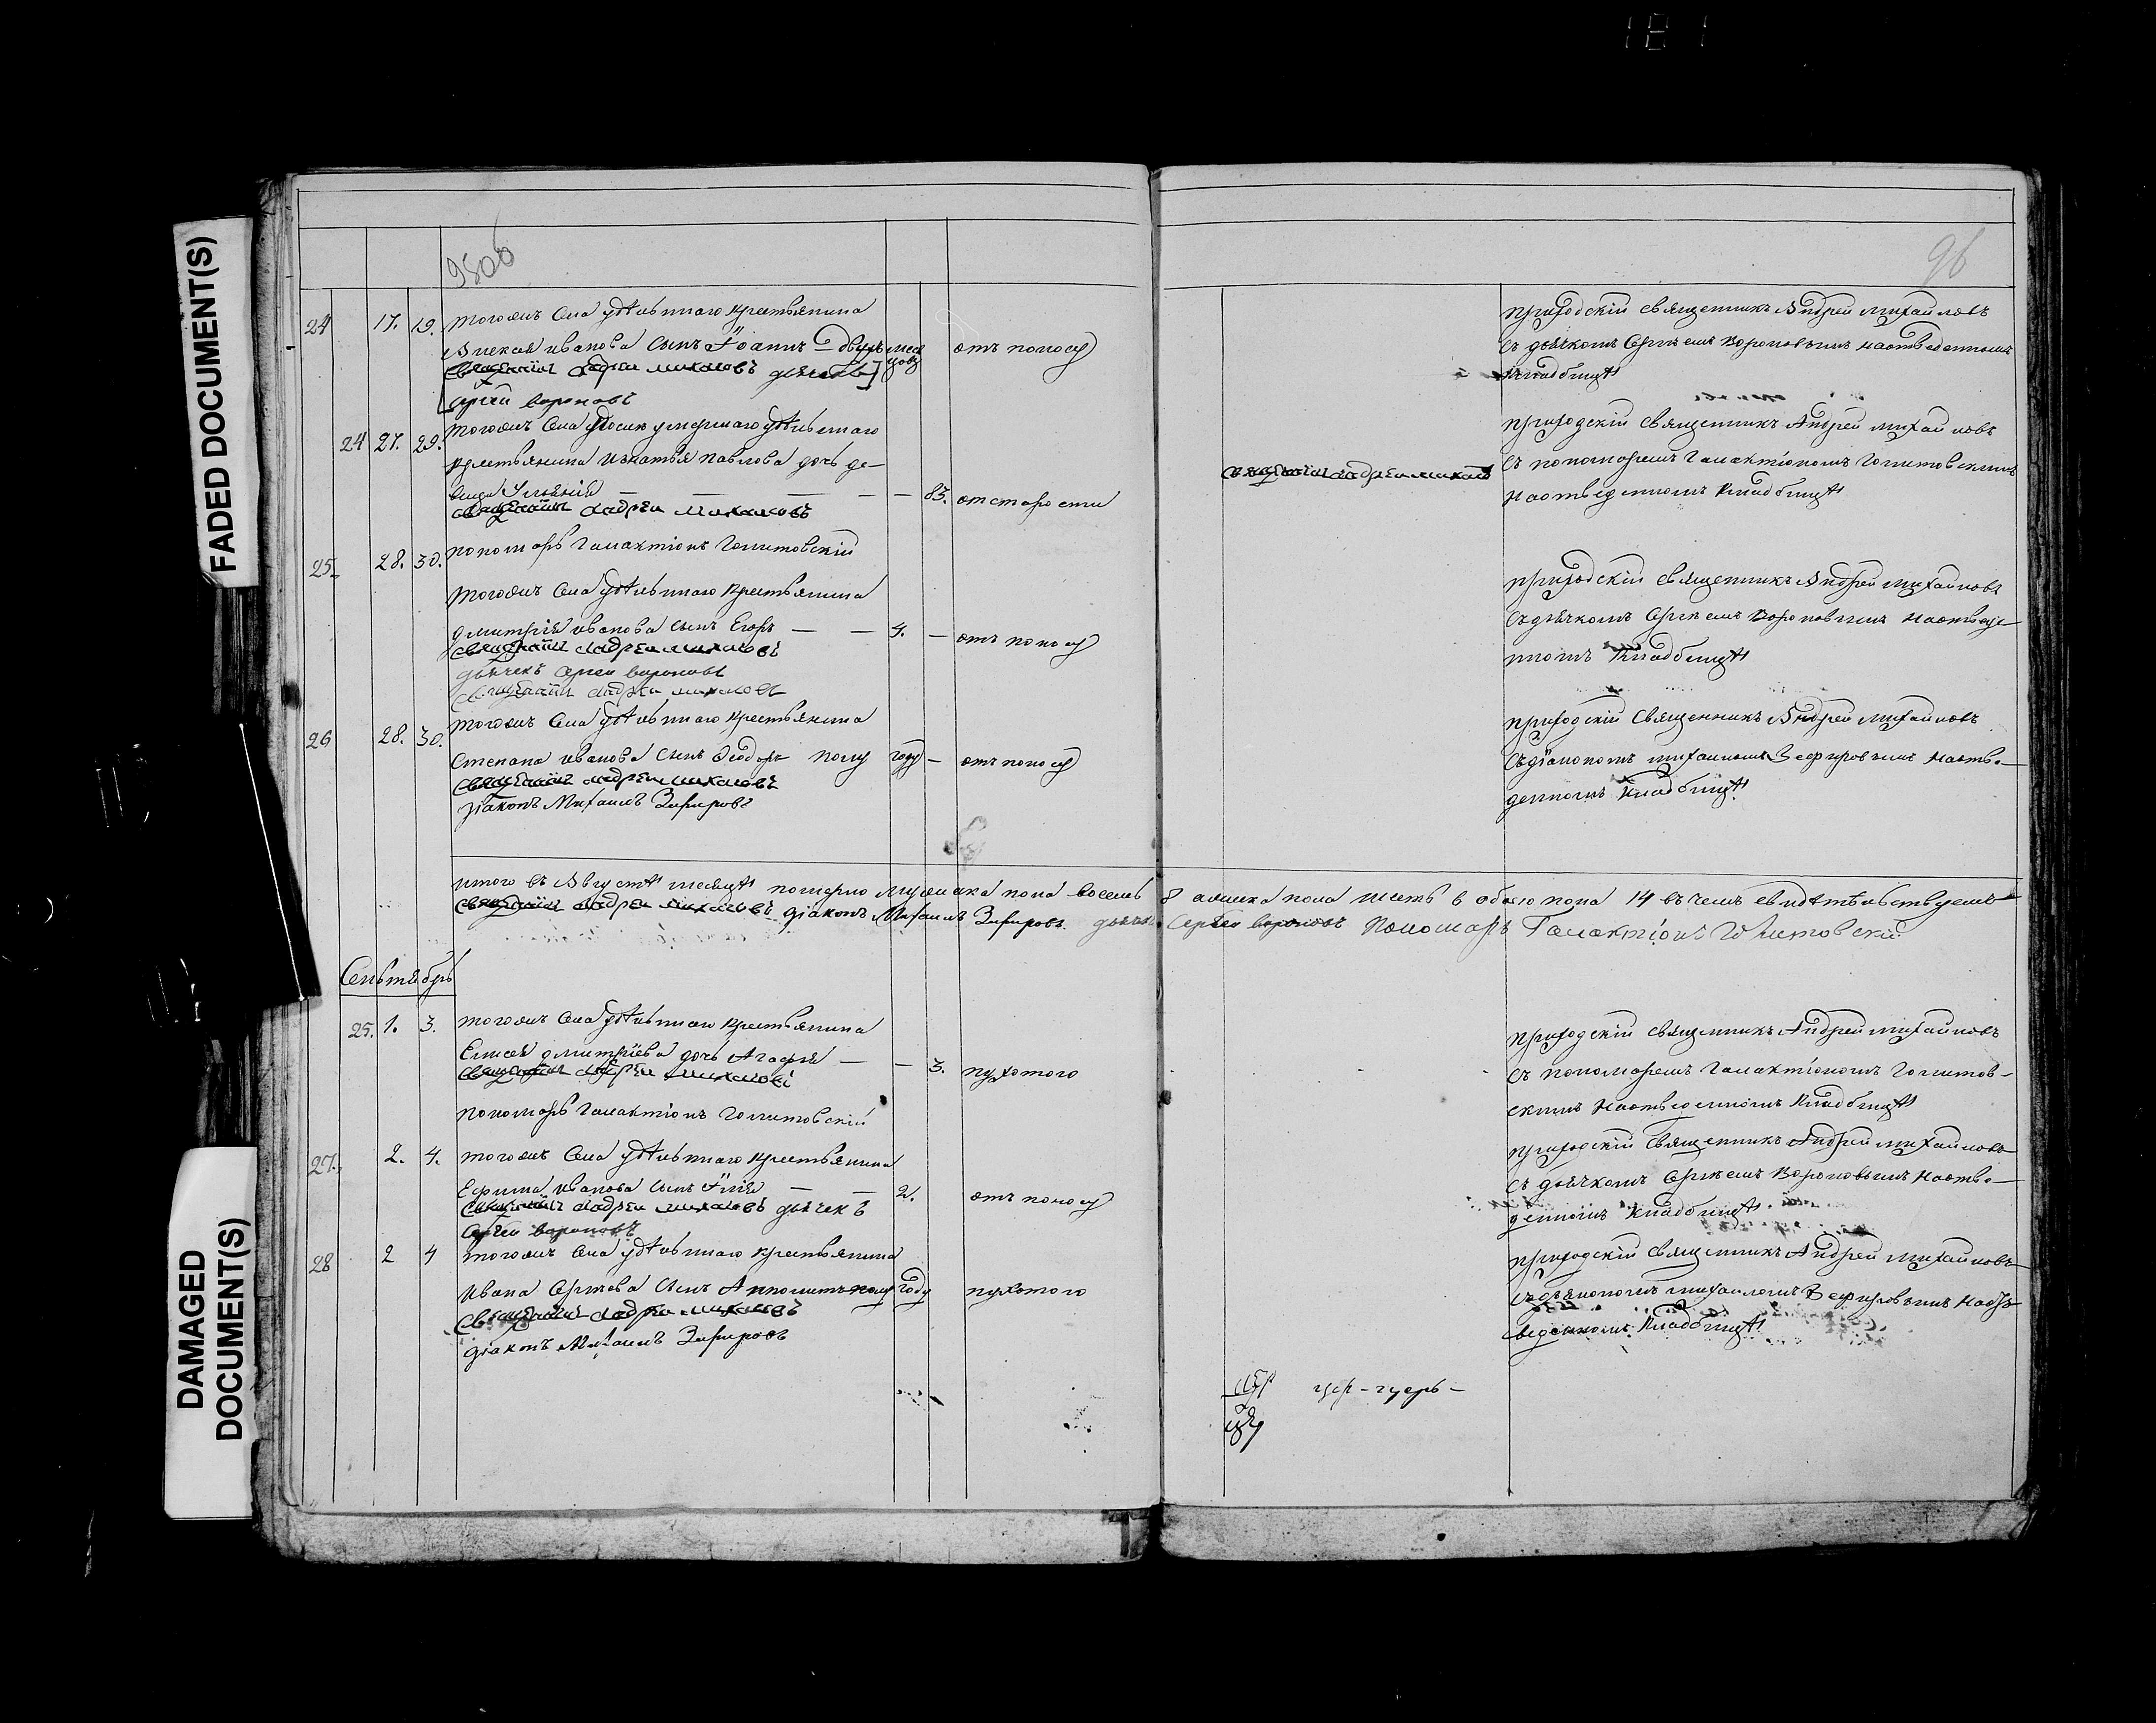 181
FADED DOCUMENT(S)
DAMAGED
DOCUMENT(S)
96
24 17. 19. тогожъ Села удѣльнаго крестьянина
Алексѣя иванова сынъ Іоаннъ двухъ месяцовъ отъ поносу
Священникъ Андрей михаиловъ дьячекъ
Сергей вороновъ
приходскій священникъ Андрей михайловъ
съ дьячкомъ Сергѣемъ Вороновымъ на отведенномъ
кладбищѣ
24 27. 29. тогожъ Села умершаго удѣльнаго
крестьянина Игнатья Павлова дочь де-
вица Ульянія — 83. от старости
священникъ Андрей михаиловъ
пономарь Галактіонъ Голитовскій
священникъ Андрей михаиловъ
приходскій священникъ Андрей михайловъ
съ пономаремъ Галактіономъ Голитовскимъ
на отведенномъ кладбищѣ
25. 28. 30. тогожъ Села удѣльнаго крестьянина
дмитрія иванова сынъ Егоръ — 4. — отъ поносу
священникъ Андрей михаиловъ
дьячекъ Сергей вороновъ
священникъ Андрей михаиловъ
приходскій священникъ Андрей михайловъ
съ дьячкомъ Сергѣемъ Вороновымъ на отведе-
нномъ кладбищѣ
26 28. 30. тогожъ Села удѣльнаго крестьянина
Степана иванова сынъ Ѳеодоръ полу году — отъ поносу
священникъ Андрей михаиловъ
діаконъ Михаилъ Зефировъ
приходскій Священникъ Андрей михайловъ
съ діакономъ михаиломъ Зефировымъ на отве-
денномъ кладбищѣ
итого въ Августѣ месяцѣ померло мужеска пола восемь 8 а женска пола шесть в обоего пола 14 въ чемъ свидѣтельствуемъ
священникъ Андрей михаиловъ діаконъ Михаилъ Зефировъ. дьячекъ Сергей вороновъ Пономарь Галактіонъ Голитовскій
Сентябрь
25. 1. 3. тогожъ Села удѣльнаго крестьянина
Елисея дмитріева дочь Агафія — — 3.
священникъ Андрей михаиловъ
пономарь Галактіонъ Голитовскій
приходскій священникъ Андрей михайловъ
съ пономаремъ Галактіономъ Голитов-
скимъ на отведенномъ кладбищѣ
27. 2. 4. тогожъ Села удѣльнаго крестьянина
Ефима иванова сынъ Илія — — 2. отъ поносу
священникъ Андрей михаиловъ дьячекъ
Сергей вороновъ
приходскій священникъ Андрей михайловъ
съ дьячкомъ Сергѣемъ Вороновымъ на отве-
денномъ кладбищѣ
28 2 4 тогожъ Села удѣльнаго крестьянина
ивана Сергѣева сынъ полу году
священникъ Андрей михаиловъ
діаконъ Михаилъ Зефировъ
приходскій священникъ Андрей михайловъ
съ діакономъ михаиломъ Зефировымъ на от-
веденномъ кладбищѣ